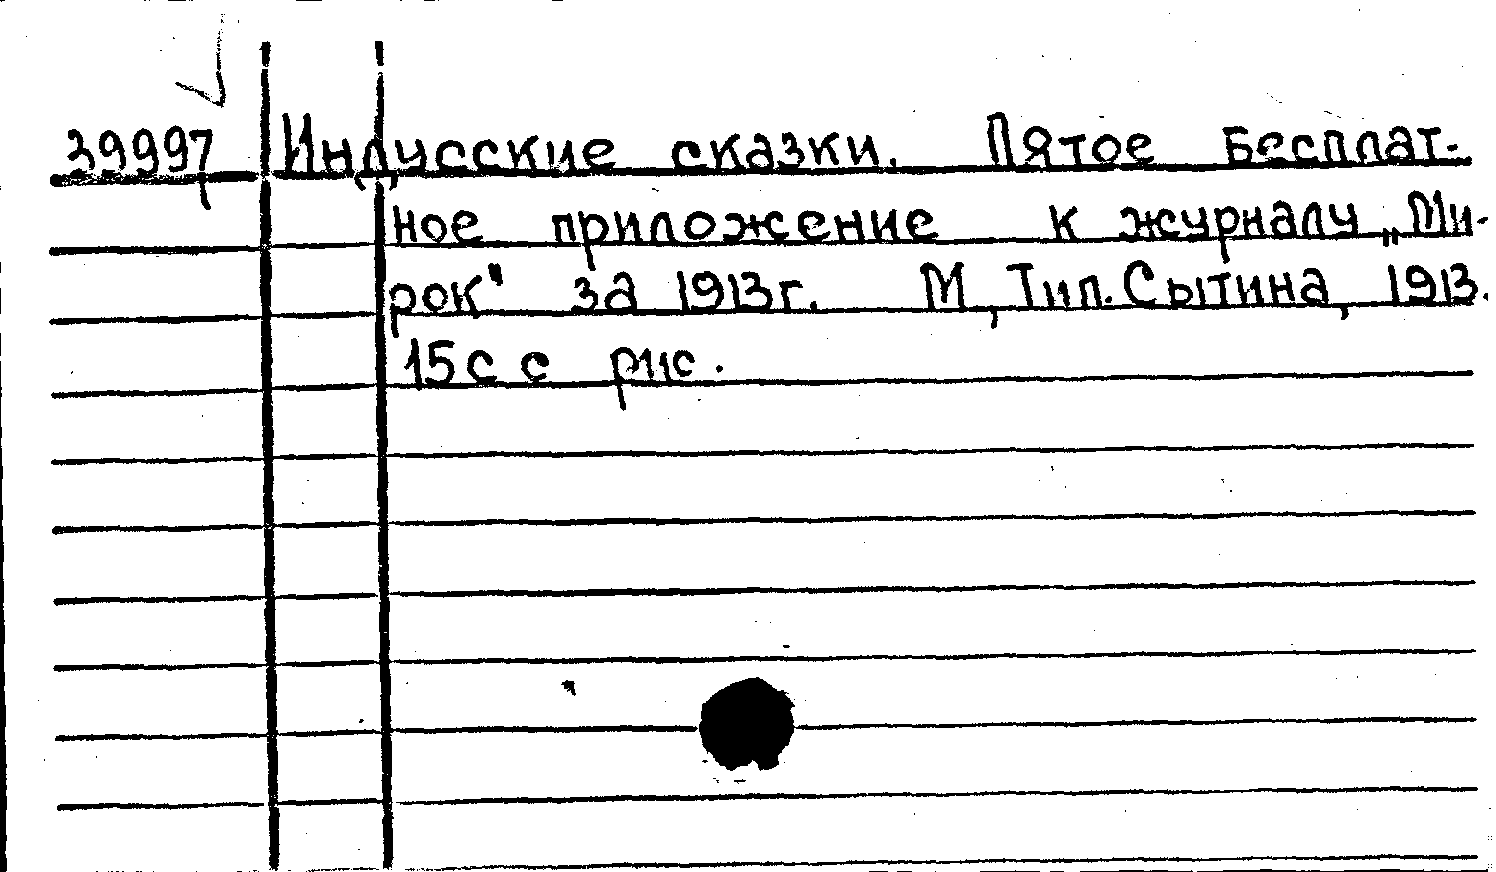 39997 Индусские сказки. Пятое бесплат-
ное приложение к журналу „Ми-
рок" за 1913г. М, Тип. Сытина, 1913.
15с с рис.